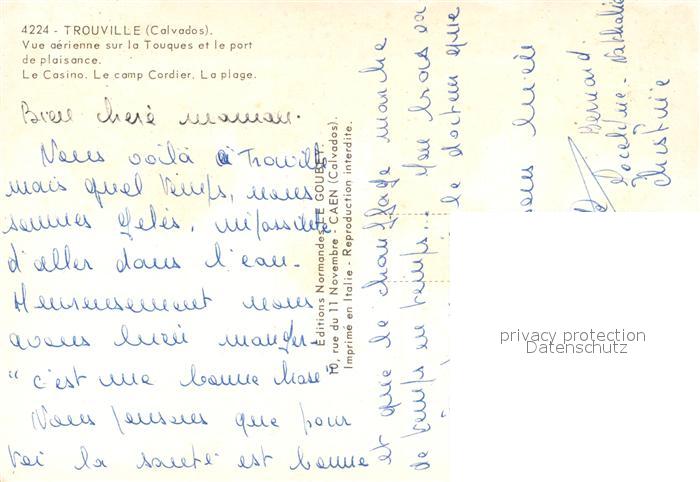 4224 - TROUVILLE (Calvados).
Vue aérienne sur la Touques et le port
de plaisance.
Le Casino. Le camp Cordier. La plage.
Bien chère maman.
Nous voilà à Trouville
mais quel temps, nous
sommes gelés, impossible
d'aller dans l'eau.
Heureusement nous
avons bien manger
"c'est une bonne chose"
Nous pensons que pour
toi la santé est bonne
et que le chauffage marche
de temps en temps...
le docteur que
Bernard
Nathalie
Christine
Editions Normandes LE GOUBEY
10, rue du 11 Novembre - CAEN (Calvados).
Imprimé en Italie - Reproduction interdite.
privacy protection
Datenschutz